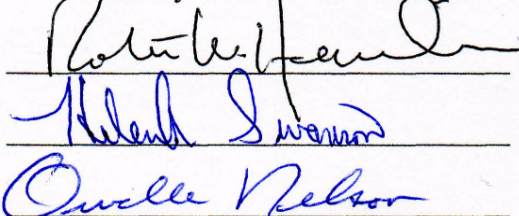 Robert W. 
Helen Swanson
Orville Nelson